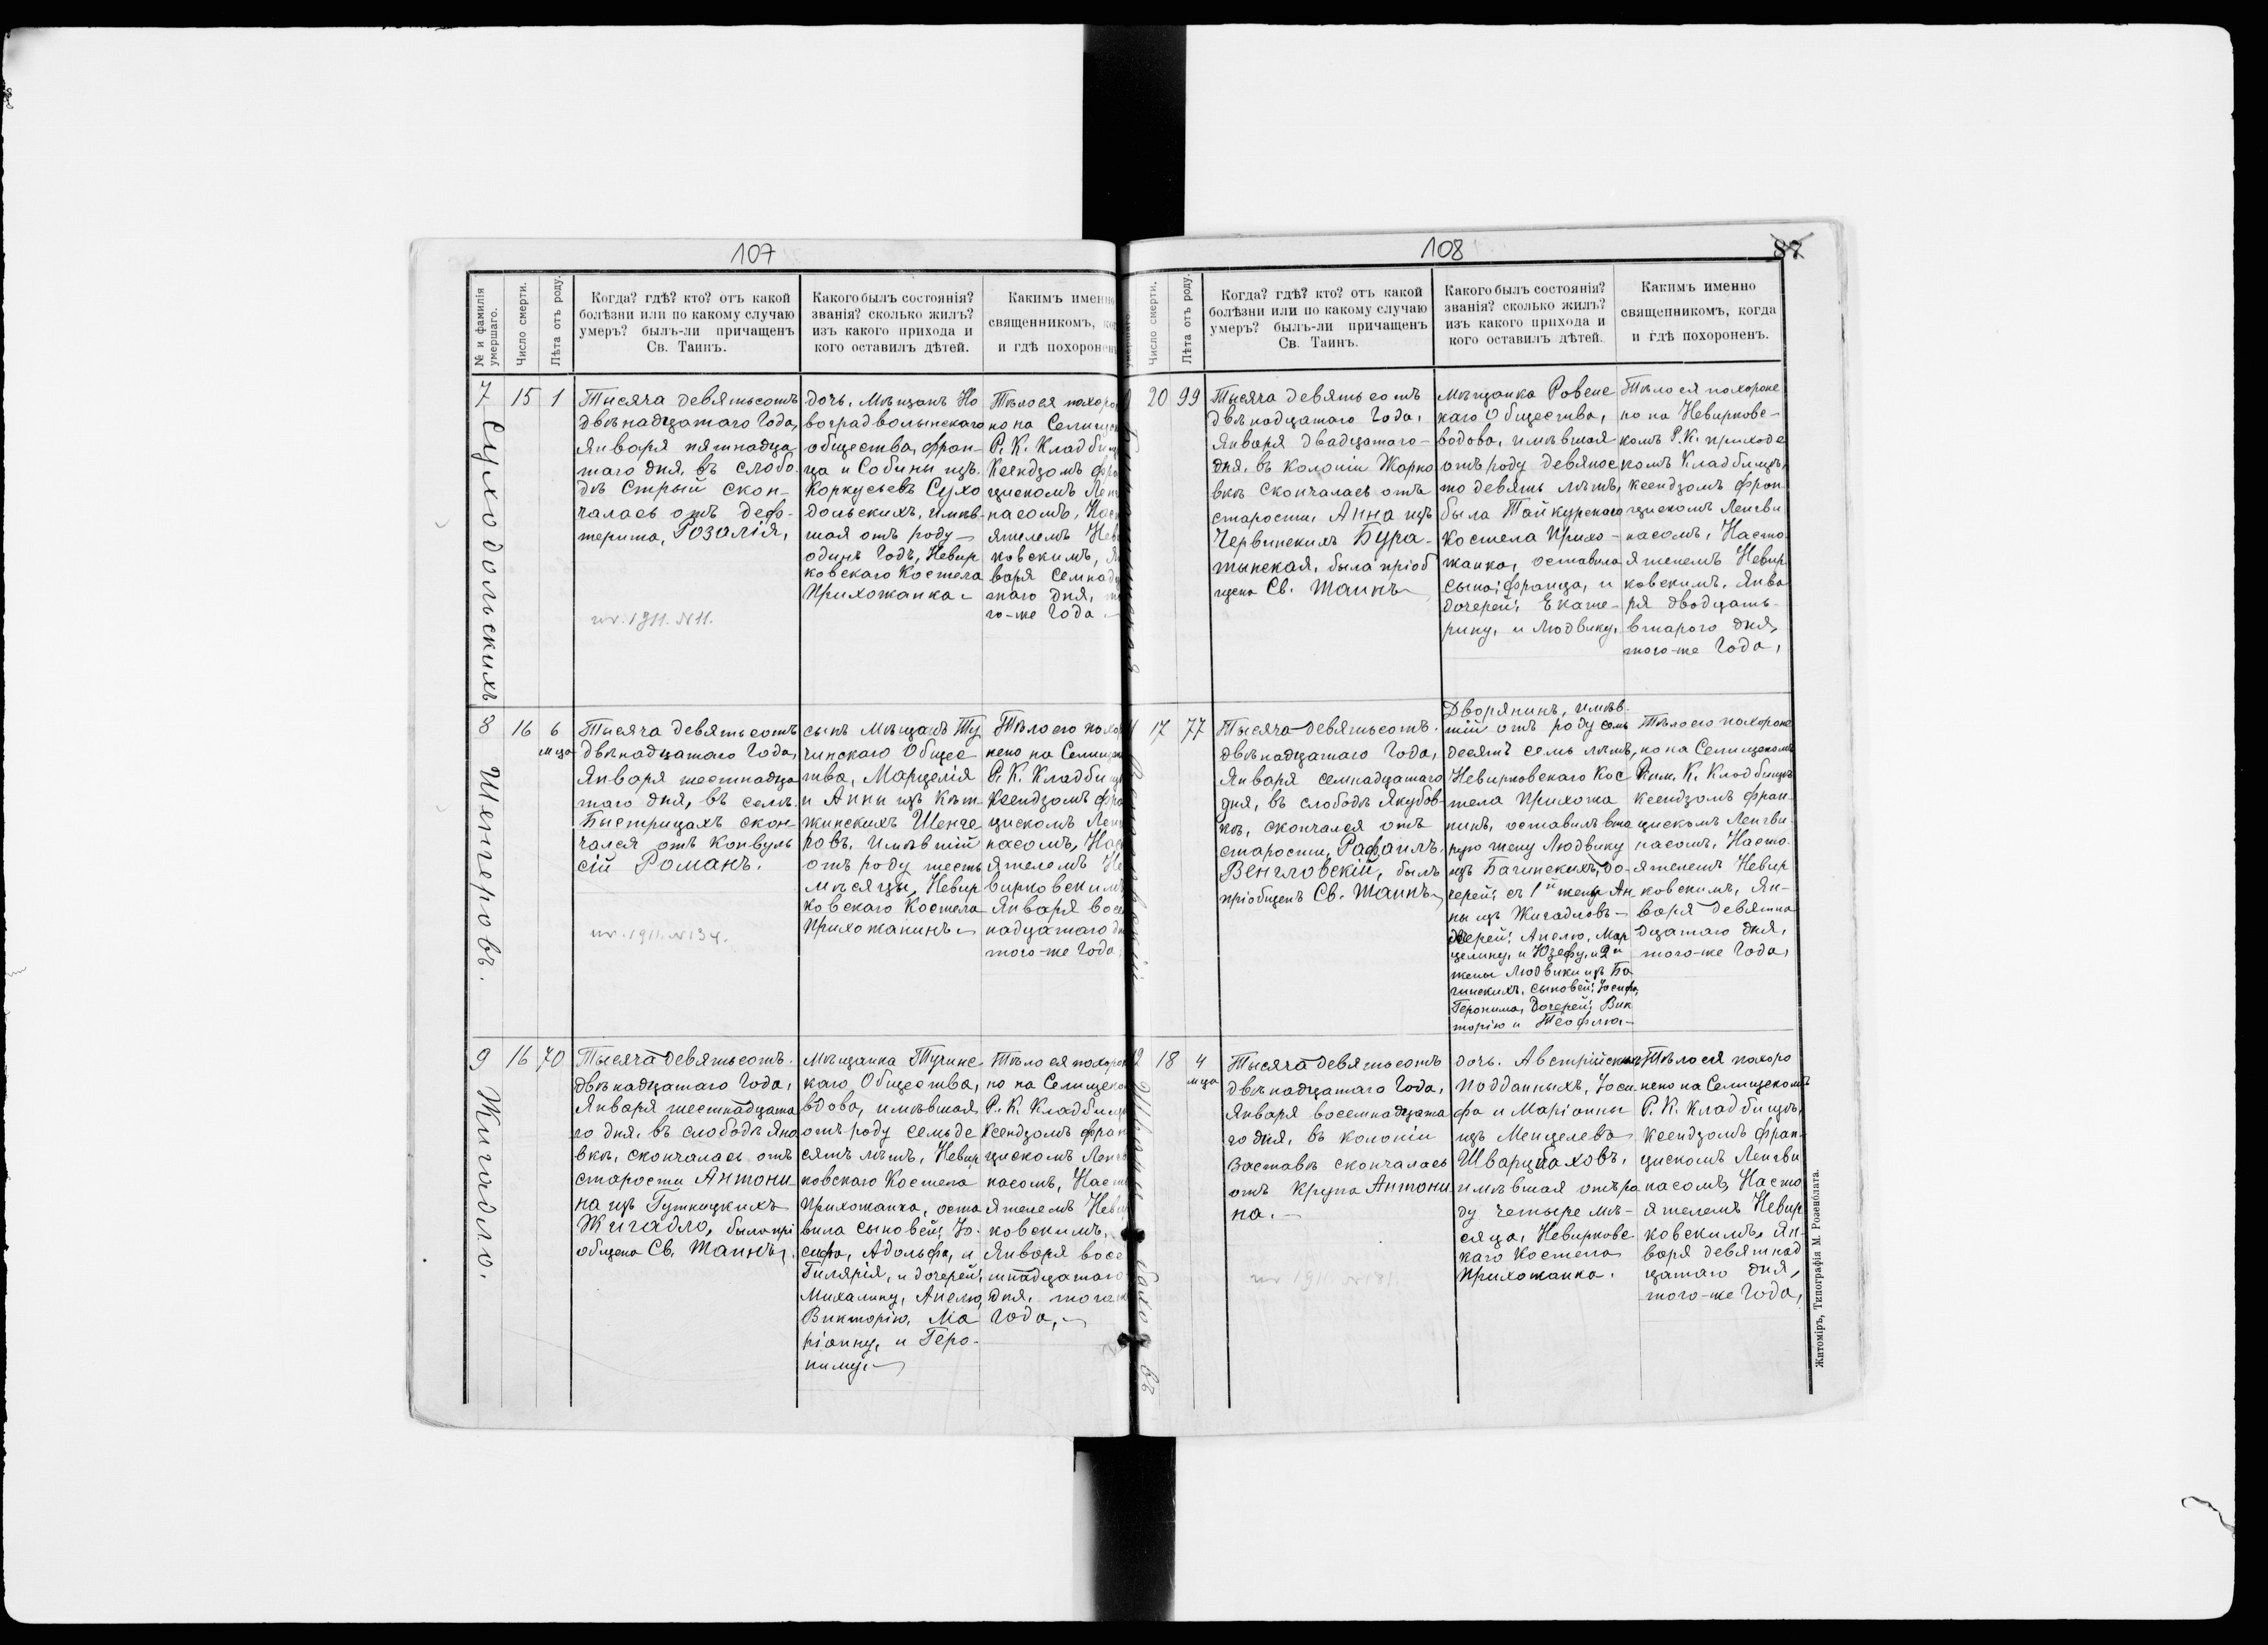 107
№ и фамилія умершаго.
Число смерти.
Лѣта отъ роду.
Когда? гдѣ? кто? отъ какой
болѣзни или по какому случаю
умеръ? былъ-ли причащенъ
Св. Таинъ.
Какого былъ состоянія?
званія? сколько жилъ?
изъ какого прихода и
кого оставилъ дѣтей.
Какимъ именно
священникомъ,
и гдѣ похороненъ
7
Суходольскихъ
15
1
Тысяча девятьсотъ
двѣнадцатаго Года,
Января пятнадца
таго дня, въ слобо
дѣ Стрый скон-
чалась отъ деф-
терита, Розалія,
nr. 1911. N 11.
дочь, Мѣщанъ Но
воградволынскаго
общества, Фран-
ца и Сабины изъ
Коркусьевъ Сухо
дольскихъ, имѣв-
шая отъ роду
одинъ Годъ, Невир
ковскаго Костела
Прихожанка
Тѣло ея похоро
но на Селищ
Р. К. Кладби
Ксендзомъ Фра
цискомъ Лен
насомъ, Нас
ятелемъ Нев
ковскимъ, Ян
варя Семнадц
таго дня, т
го-же Года.
8
Шенгеровъ.
16
6
м-ца
Тысяча девятьсотъ
двѣнадцатаго Года,
Января шестнадца
таго дня, въ селѣ
Быстрицахъ скон-
чался отъ Конвуль
сій Романъ.
nr. 1911. N 134.
сынъ Мѣщанъ Ту
чинскаго Общес
тва, Марцелія
и Анны изъ Кѣт
жинскихъ Шенге
ровъ, Имѣвшій
отъ роду шесть
мѣсяцы, Невир
ковскаго Костела
Прихожанинъ
Тѣло его похор
нено на Селищ
Р. К. Кладби
Ксендзомъ Фра
цискомъ Лен
насомъ, Нас
ятелемъ Не
вирковскимъ
Января вос
надцатаго дн
того-же Года,
9
Жигадло.
16
70
Тысяча девятьсотъ
двѣнадцатаго Года,
Января шестнадцата
го дня, въ слободѣ Яно
вкѣ, скончалась отъ
старости Антони
на изъ Гутницкихъ
Жигадло, была прі
общена Св. Таинъ.
Мѣщанка Тучинс
каго Общества,
вдова, имѣвшая
отъ роду семьде
сятъ лѣтъ, Невир
ковскаго Костела
Прихожанка, оста
вила сыновей: Іо-
сифа, Адольфа, и
Гилярія, и дочерей:
Михалину, Анелю,
Викторію, Ма
ріанну, и Геро-
ниму.
Тѣло ея похоро
но на Селищско
Р. К. Кладбищ
Ксендзомъ Фран
цискомъ Ленгв
насомъ, Наст
ятелемъ Неви
ковскимъ,
Января восе
мнадцатаго
дня, того-ж
Года,
108
87
Число смерти.
Лѣта отъ роду.
Когда? гдѣ? кто? отъ какой
болѣзни или по какому случаю
умеръ? былъ-ли причащенъ
Св. Таинъ.
Какого былъ состоянія?
званія? сколько жилъ?
изъ какого прихода и
кого оставилъ дѣтей.
Какимъ именно
священникомъ, когда
и гдѣ похороненъ.
20
99
Тысяча девятьсотъ
двѣнадцатаго Года,
Января двадцатаго
дня, въ колоніи Жарно
вкѣ скончалась отъ
старости, Анна изъ
Червинскихъ Бура-
тынская, была пріоб
щена Св. Таинъ
Мѣщанка Ровенс
каго Общества,
вдова, имѣвшая
отъ роду девянос
то девять лѣтъ,
была Тайкурскаго
Костела Прихо-
жанка, оставила
сына: Франца, и
дочерей: Екате-
рину, и Людвику,
Тѣло ея похороне
но на Невирковс-
комъ Р. К. приходс
комъ Кладбищѣ,
Ксендзомъ Фран
цискомъ Ленгви
насомъ, Насто
ятелемъ Невир
ковскимъ, Янва
ря двадцать
втораго дня,
того-же Года,
17
77
Тысяча девятьсотъ
двѣнадцатаго Года,
Января семнадцатаго
дня, въ слободѣ Якубов-
кѣ, скончался отъ
старости, Рафаилъ
Венгловскій, былъ
пріобщенъ Св. Таинъ
Дворянинъ, имѣв-
шій отъ роду семь
десятъ семь лѣтъ,
Невирковскаго Кос
тела Прихожа
нинъ, оставилъ вто
рую жену Людвику
изъ Багинскихъ, до-
черей: съ 1й жены Ан
ны изъ Жигадловъ
дочерей: Анелю, Мар
целину, и Юзефу, и 2й
жены Людвики изъ Ба
гинскихъ, сыновей: Іосифа,
Геронима, Дочерей: Вик
торію и Теофилю
Тѣло его похороне
но на Селищскомъ
Рим. К. Кладбищѣ
Ксендзомъ Фран-
цискомъ Ленгви
насомъ, Насто-
ятелемъ Невир
ковскимъ, Ян-
варя девятна
дцатаго дня,
того-же Года,
18
4
м-ца
Тысяча девятьсотъ
двѣнадцатаго Года,
Января восемнадцата
го дня, въ колоніи
Заставѣ скончалась
отъ Крупа Антони
на.
дочь, Австрійскихъ
подданныхъ, Іоси
фа и Маріанны
изъ Менцелевъ
Шварцбаховъ,
имѣвшая отъ ро
ду четыре мѣ-
сяца, Невирковс
каго Костела
Прихожанка.
Тѣло ея похоро
нено на Селищскомъ
Р. К. Кладбищѣ,
Ксендзомъ Фран-
цискомъ Ленгви
насомъ, Насто
ятелемъ Невир
ковскимъ, Ян-
варя девятнад
цатаго дня,
того-же Года,
Житоміръ, Типографія М. Розенблата.